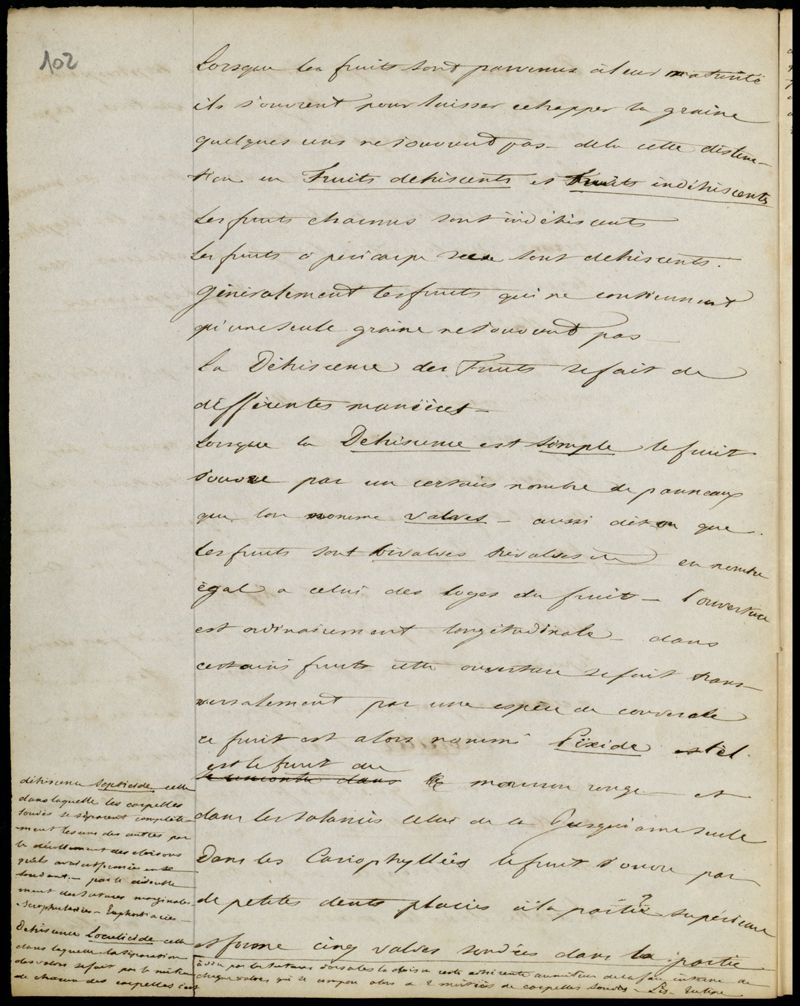 102
Lorsque les fruits sont parvenus à leur maturité
ils s'ouvrent pour laisser echapper la graine
quelques uns ne s'ouvrent pas - de la cette distinc-
tion en Fruits dehiscents et Fruits indéhiscents
Les fruits charnus sont indéhiscents
Les fruits à pericarpe sec sont dehiscents.
généralement les fruits qui ne contiennent
qu'une seule graine ne s'ouvrent pas
La Déhiscence des Fruits se fait de
différentes manières -
Lorsque la Dehiscence est simple le fruit
s'ouvre par un certains nombre de panneaux
que l'on nomme valves - aussi dit on que
les fruits sont bivalves trivalves en nombre
égal a celui des loges du fruit - l'ouverture
est ordinairement longitudinale - dans
certains fruits cette ouverture se fait trans-
versalement par une espèce de couvercle
ce fruit est alors nommé Pixide est el
est le fruit du
se rencontre dans mouron rouge - et
dans les solanées celui de la Jusquiame seule
Dans les Cariophyllées le fruit s'ouvre par
de petites dents placées à la partie supérieure
et forme cinq valves soudées dans la partie
déhiscence Septicide celle
dans laquelle les carpelles
soudés se séparent complète-
ment les uns des autres par
le dédoublement des cloisons
qu'ils avaient formées en se
soudant - par le décolle
ment des sutures marginales
- Scrophulariées - Euphorbiacées
Dehiscence Loculicide celle
dans laquelle la séparation
des valves se fait par le milieu
de chacun des carpelles c'est
à dire par la suture dorsale la cloison reste adhérente au milieu de la face interne de
chaque valve, qui se compose alors de 2 moitiés de carpelles soudés -